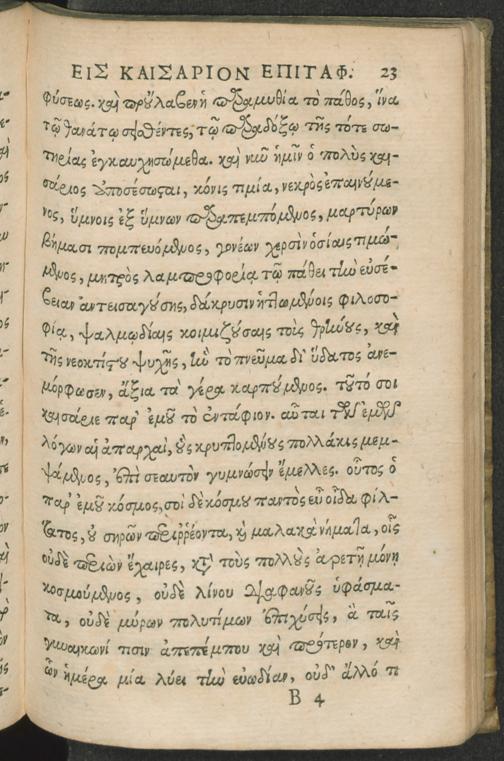 ΕΙΣ ΚΑΙΣΑΡΙΟΝ ΕΠΙΤΑΦ. 23
φύσεως. καὶ προὔλαβεν ἡ παραμυθία τὸ πάθος, ἵνα
τῷ θανάτῳ σπαθέντες, τῷ παραδόξῳ τῆς τότε σω-
τηρίας ἐγκαυχησώμεθα. καὶ νῦν ἡμῖν ὁ πολὺς και-
σάριος ἀποσέσωσται, κόνις τιμία, νεκρὸς ἐπαινούμε-
νος, ὕμνοις ἐξ ὕμνων παραπεμπόμενος, μαρτύρων
βήμασι πομπευόμενος, γονέων χερσὶν ὁσίαις τιμώ-
μενος, μητρὸς λαμπροφορίᾳ τῷ πάθει τὴν εὐσέ-
βειαν ἀντεισαγούσης, δάκρυσιν ἡττωμένοις φιλοσο-
φίᾳ, ψαλμῳδίαις κοιμιζούσαις τοὺς θρήνους, καὶ
τῆς νεοκτίστου ψυχῆς, ἣν τὸ πνεῦμα δι' ὕδατος ἀνε-
μόρφωσεν, ἄξια τὰ γέρα καρπούμενος. τοῦτό σοι
καισάριε παρ' ἐμοῦ τὸ ἐντάφιον. αὗται τῶν ἐμῶν
λόγων αἱ ἀπαρχαὶ, οὓς κρυπτομένους πολλάκις μεμ-
ψάμενος, ἐπὶ σεαυτὸν γυμνώσειν ἔμελλες. οὗτος ὁ
παρ' ἐμοῦ κόσμος, σοὶ δὲ κόσμου παντὸς εὖ οἶδα φίλ-
τατος, οὐ σηρῶν περιῤῥέοντα, καὶ μαλακὰ νήματα, οἷς
οὐδὲ περιὼν ἔχαιρες, κατὰ τοὺς πολλοὺς ἀρετῇ μόνῃ
κοσμούμενος, οὐδὲ λίνου διαφανοῦς ὑφάσμα-
τα, οὐδὲ μύρων πολυτίμων ἐπιχύσεις, ἃ ταῖς
γυναικωνί τισιν ἀπεπέμπου καὶ πρότερον, καὶ
ὧν ἡμέρα μία λύει τὴν εὐωδίαν, οὐδ' ἄλλό τι
Β 4